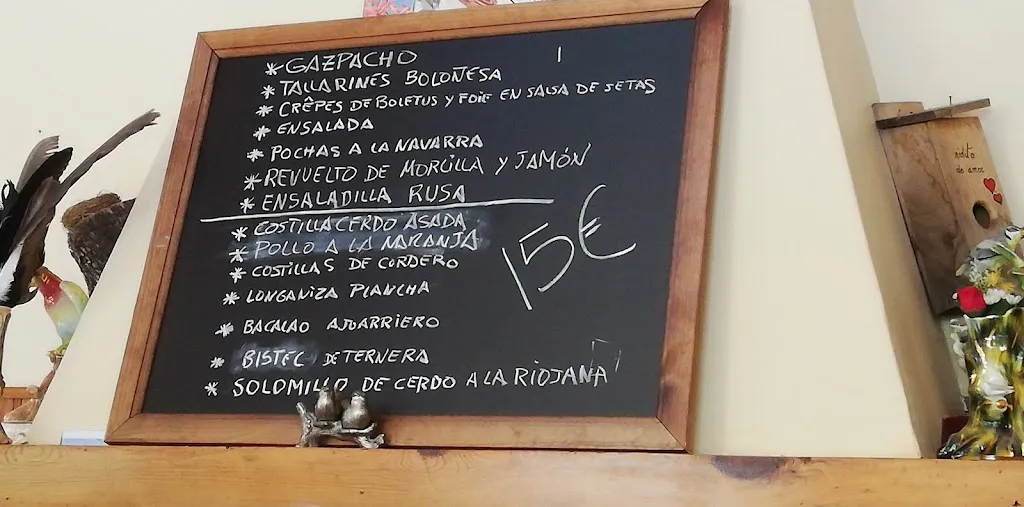 * GAZPACHO
* TALLARINES BOLOÑESA
* CRÊPES DE BOLETUS Y FOIE EN SALSA DE SETAS
* ENSALADA
* POCHAS A LA NAVARRA
* REVUELTO DE MORCILLA Y JAMÓN
* ENSALADILLA RUSA
* COSTILLA CERDO ASADA
* POLLO A LA NARANJA
* COSTILLAS DE CORDERO
* LONGANIZA PLANCHA
* BACALAO AJOARRIERO
* BISTEC DE TERNERA
* SOLOMILLO DE CERDO A LA RIOJANA
15€
nidito
de amor